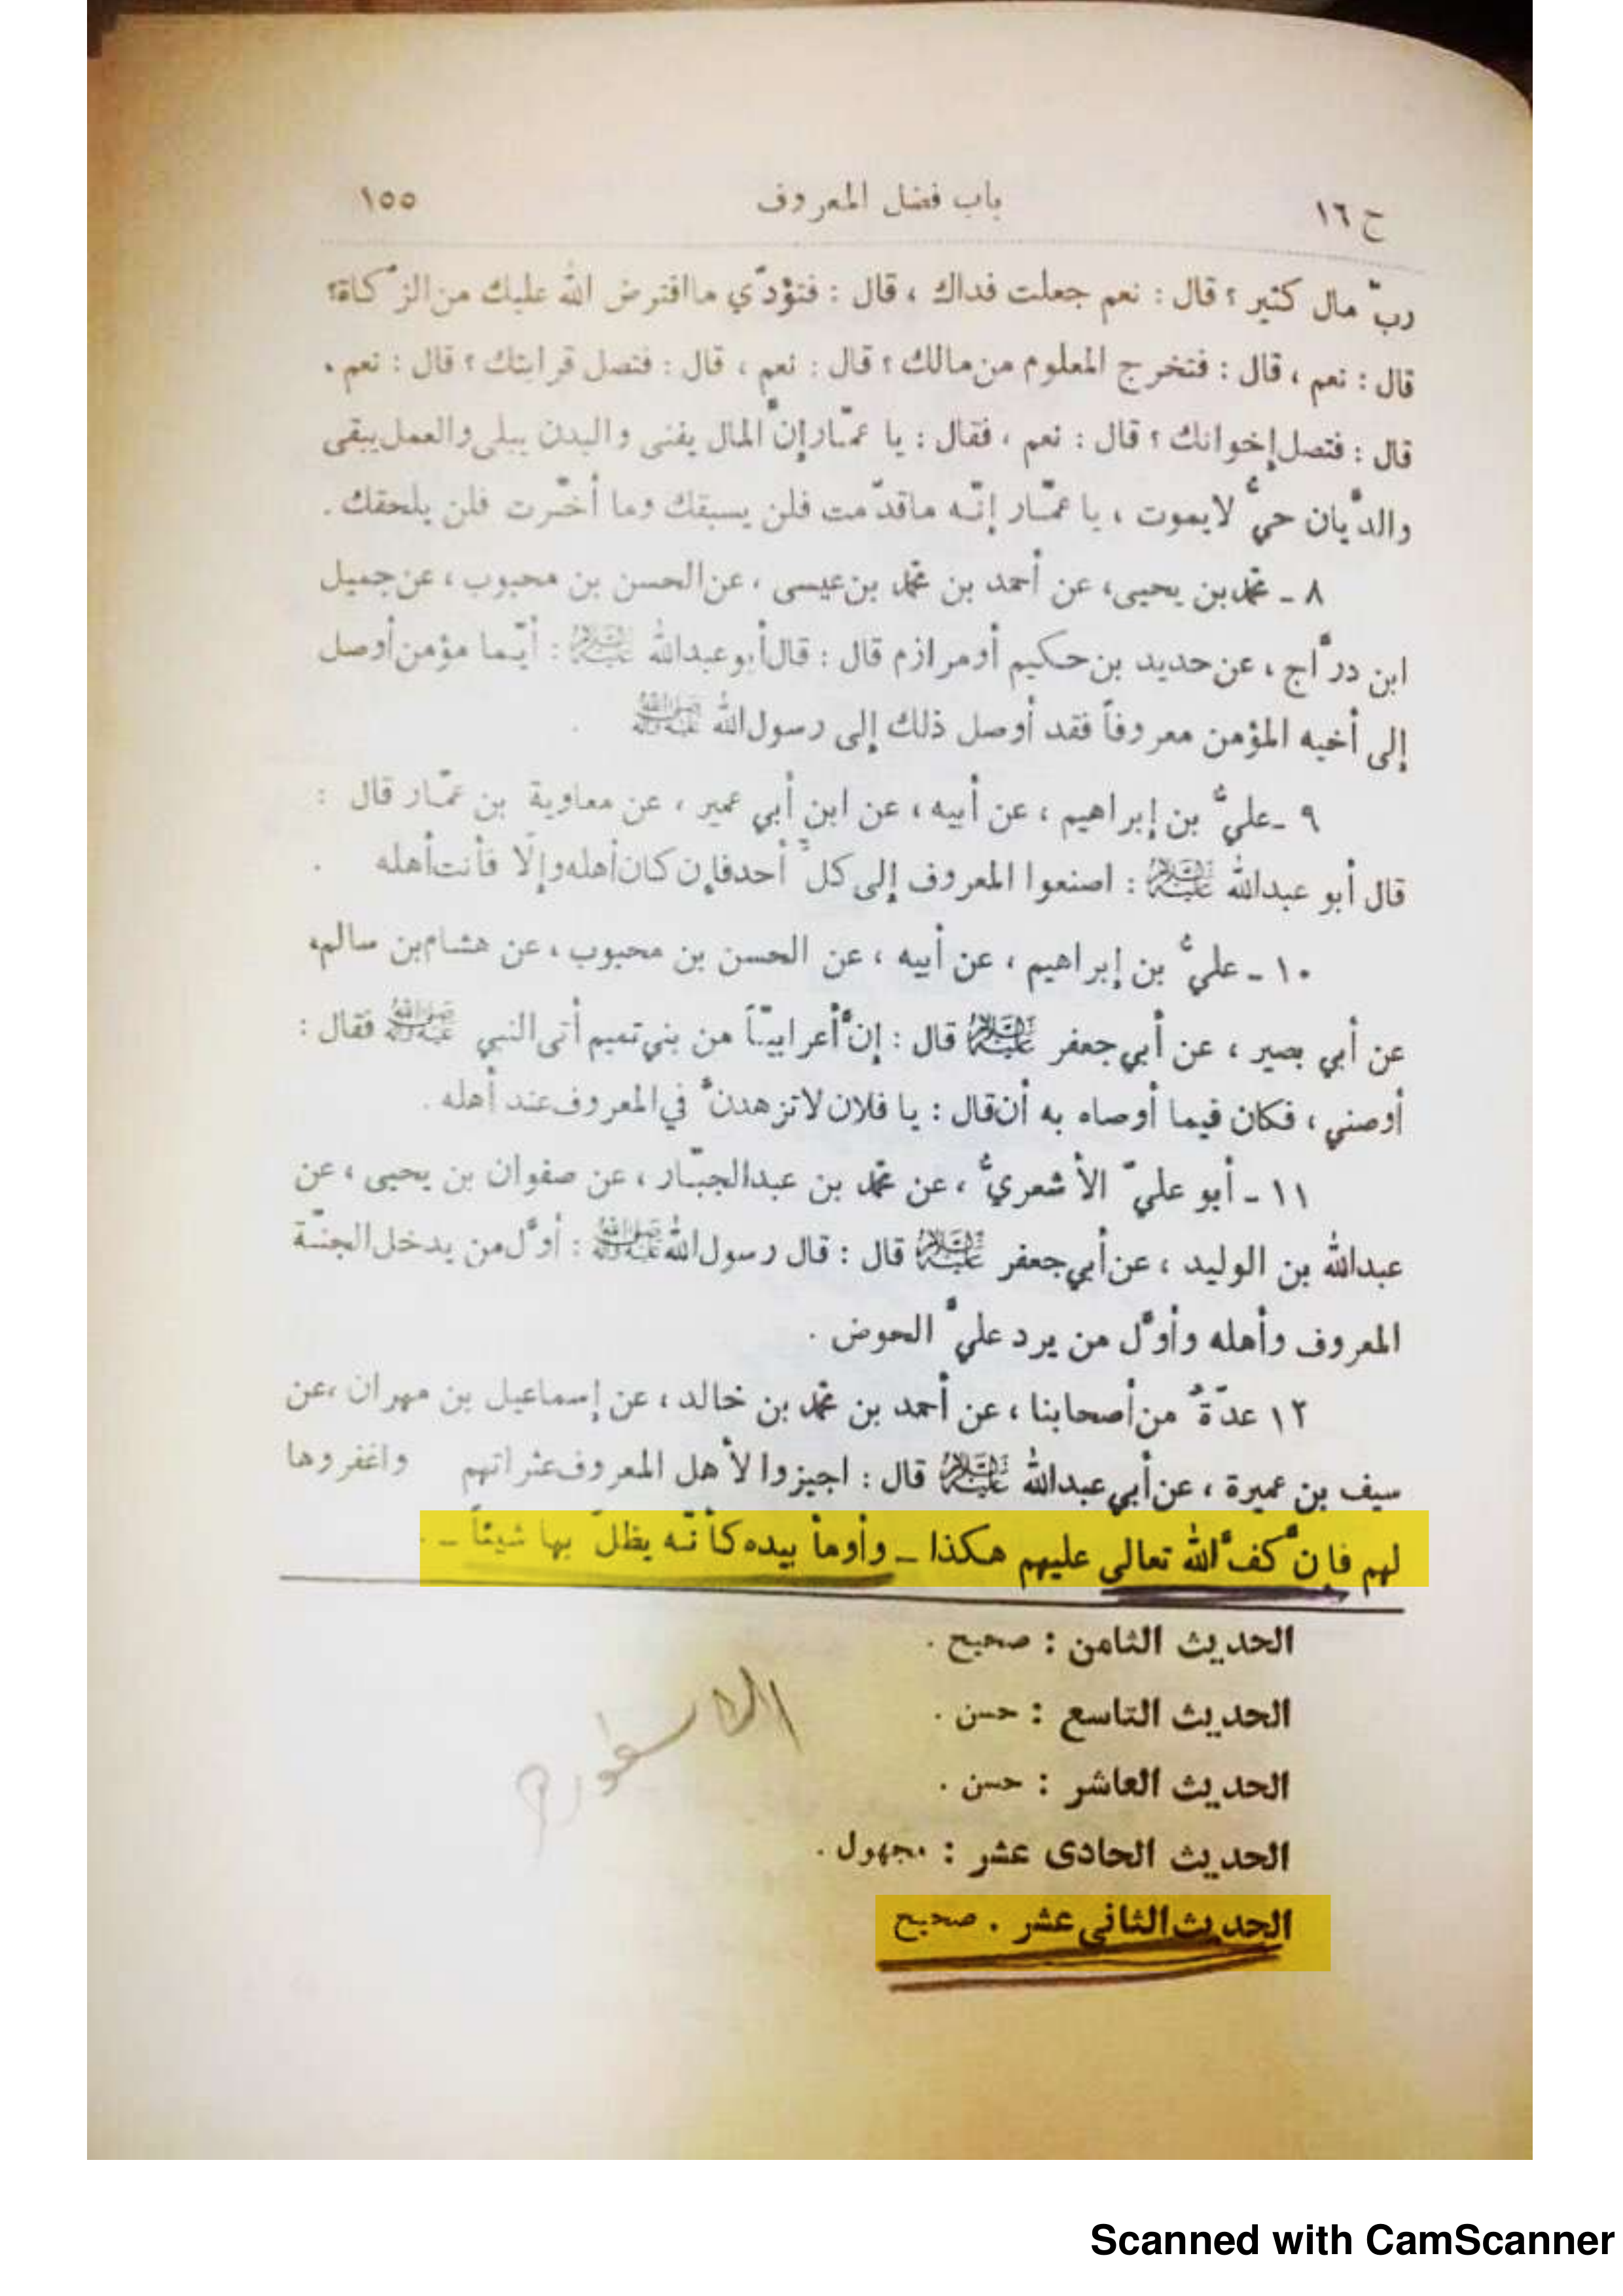 ح ١٦ باب فضل المعروف ١٥٥
ربّ مال كثير ؟ قال : نعم جعلت فداك ، قال : فتؤدّي ما افترض الله عليك من الزكاة؟
قال : نعم ، قال : فتخرج المعلوم من مالك ؟ قال : نعم ، قال : فتصل قرابتك ؟ قال : نعم .
قال : فتصل إخوانك ؟ قال : نعم ، فقال : يا عمّار إنّ المال يفنى والبدن يبلى والعمل يبقى
والديّان حيّ لايموت ، يا عمّار إنّه ماقدّمت فلن يسبقك وما أخّرت فلن يلحقك .
٨ ـ محمّد بن يحيى، عن أحمد بن محمّد بن عيسى ، عن الحسن بن محبوب ، عن جميل
ابن درّاج ، عن حديد بن حكيم أو مرازم قال : قال أبو عبدالله عليه السلام : أيّما مؤمن أوصل
إلى أخيه المؤمن معروفاً فقد أوصل ذلك إلى رسول الله صلى الله عليه وآله .
٩ ـ عليّ بن إبراهيم ، عن أبيه ، عن ابن أبي عمير ، عن معاوية بن عمّار قال :
قال أبو عبدالله عليه السلام : اصنعوا المعروف إلى كلّ أحد فإن كان أهله وإلّا فأنت أهله .
١٠ ـ عليّ بن إبراهيم ، عن أبيه ، عن الحسن بن محبوب ، عن هشام بن سالم،
عن أبي بصير ، عن أبي جعفر عليه السلام قال : إنّ أعرابيّاً من بني تميم أتى النبي صلى الله عليه وآله فقال :
أوصني ، فكان فيما أوصاه به أن قال : يا فلان لاتزهدنّ في المعروف عند أهله .
١١ ـ أبو عليّ الأشعريّ ، عن محمّد بن عبدالجبّار ، عن صفوان بن يحيى ، عن
عبدالله بن الوليد ، عن أبي جعفر عليه السلام قال : قال رسول الله صلى الله عليه وآله : أوّل من يدخل الجنّة
المعروف وأهله وأوّل من يرد عليّ الحوض .
١٢ عدّةٌ من أصحابنا ، عن أحمد بن محمّد بن خالد ، عن إسماعيل بن مهران ،عن
سيف بن عميرة ، عن أبي عبدالله عليه السلام قال : اجيزوا لأهل المعروف عثراتهم واغفروها
لهم فإنّ كفّ الله تعالى عليهم هكذا ـ وأومأ بيده كأنّه يظلّ بها شيئاً ـ .
الحديث الثامن : صحيح .
الحديث التاسع : حسن .
الحديث العاشر : حسن .
الحديث الحادى عشر : مجهول .
الحديث الثانى عشر . صحيح
الاسطورة
Scanned with CamScanner